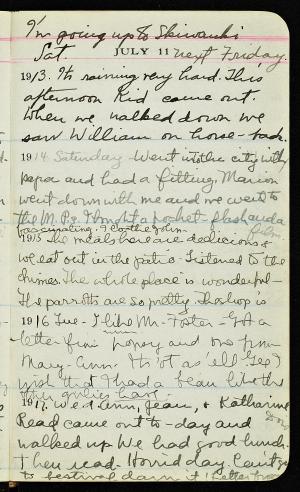 I'm going up to Skiwauki
Sat. JULY 11 next Friday.
1913. It's raining very hard. This
afternoon Kid came out.
When we walked down we
saw William on horse-back.
1914 Saturday Went into the city with
papa and had a fitting. Marion
went down with me and we went to
the M.P.s I bought a pocket flash and a
fascinating. 7 Co the John
film
1915 The meals here are delicious &
we eat out in the patio. Listened to the
chimes. The whole place is wonderful-
The parrots are so pretty. The shop is
1916 Tue- I like Mr- Foster- Got a
letter from popsy and one from
Mary-Ann. It's 'ot as 'ell. Gee I
wish that I had a beau like the
other girlies have.
1917. Wed. Ann, Jean, & Katharine
Read came out to-day and
walked up. We had good lunch.
Then read. Horrid day. Can't go
to festival darn it! Letter from